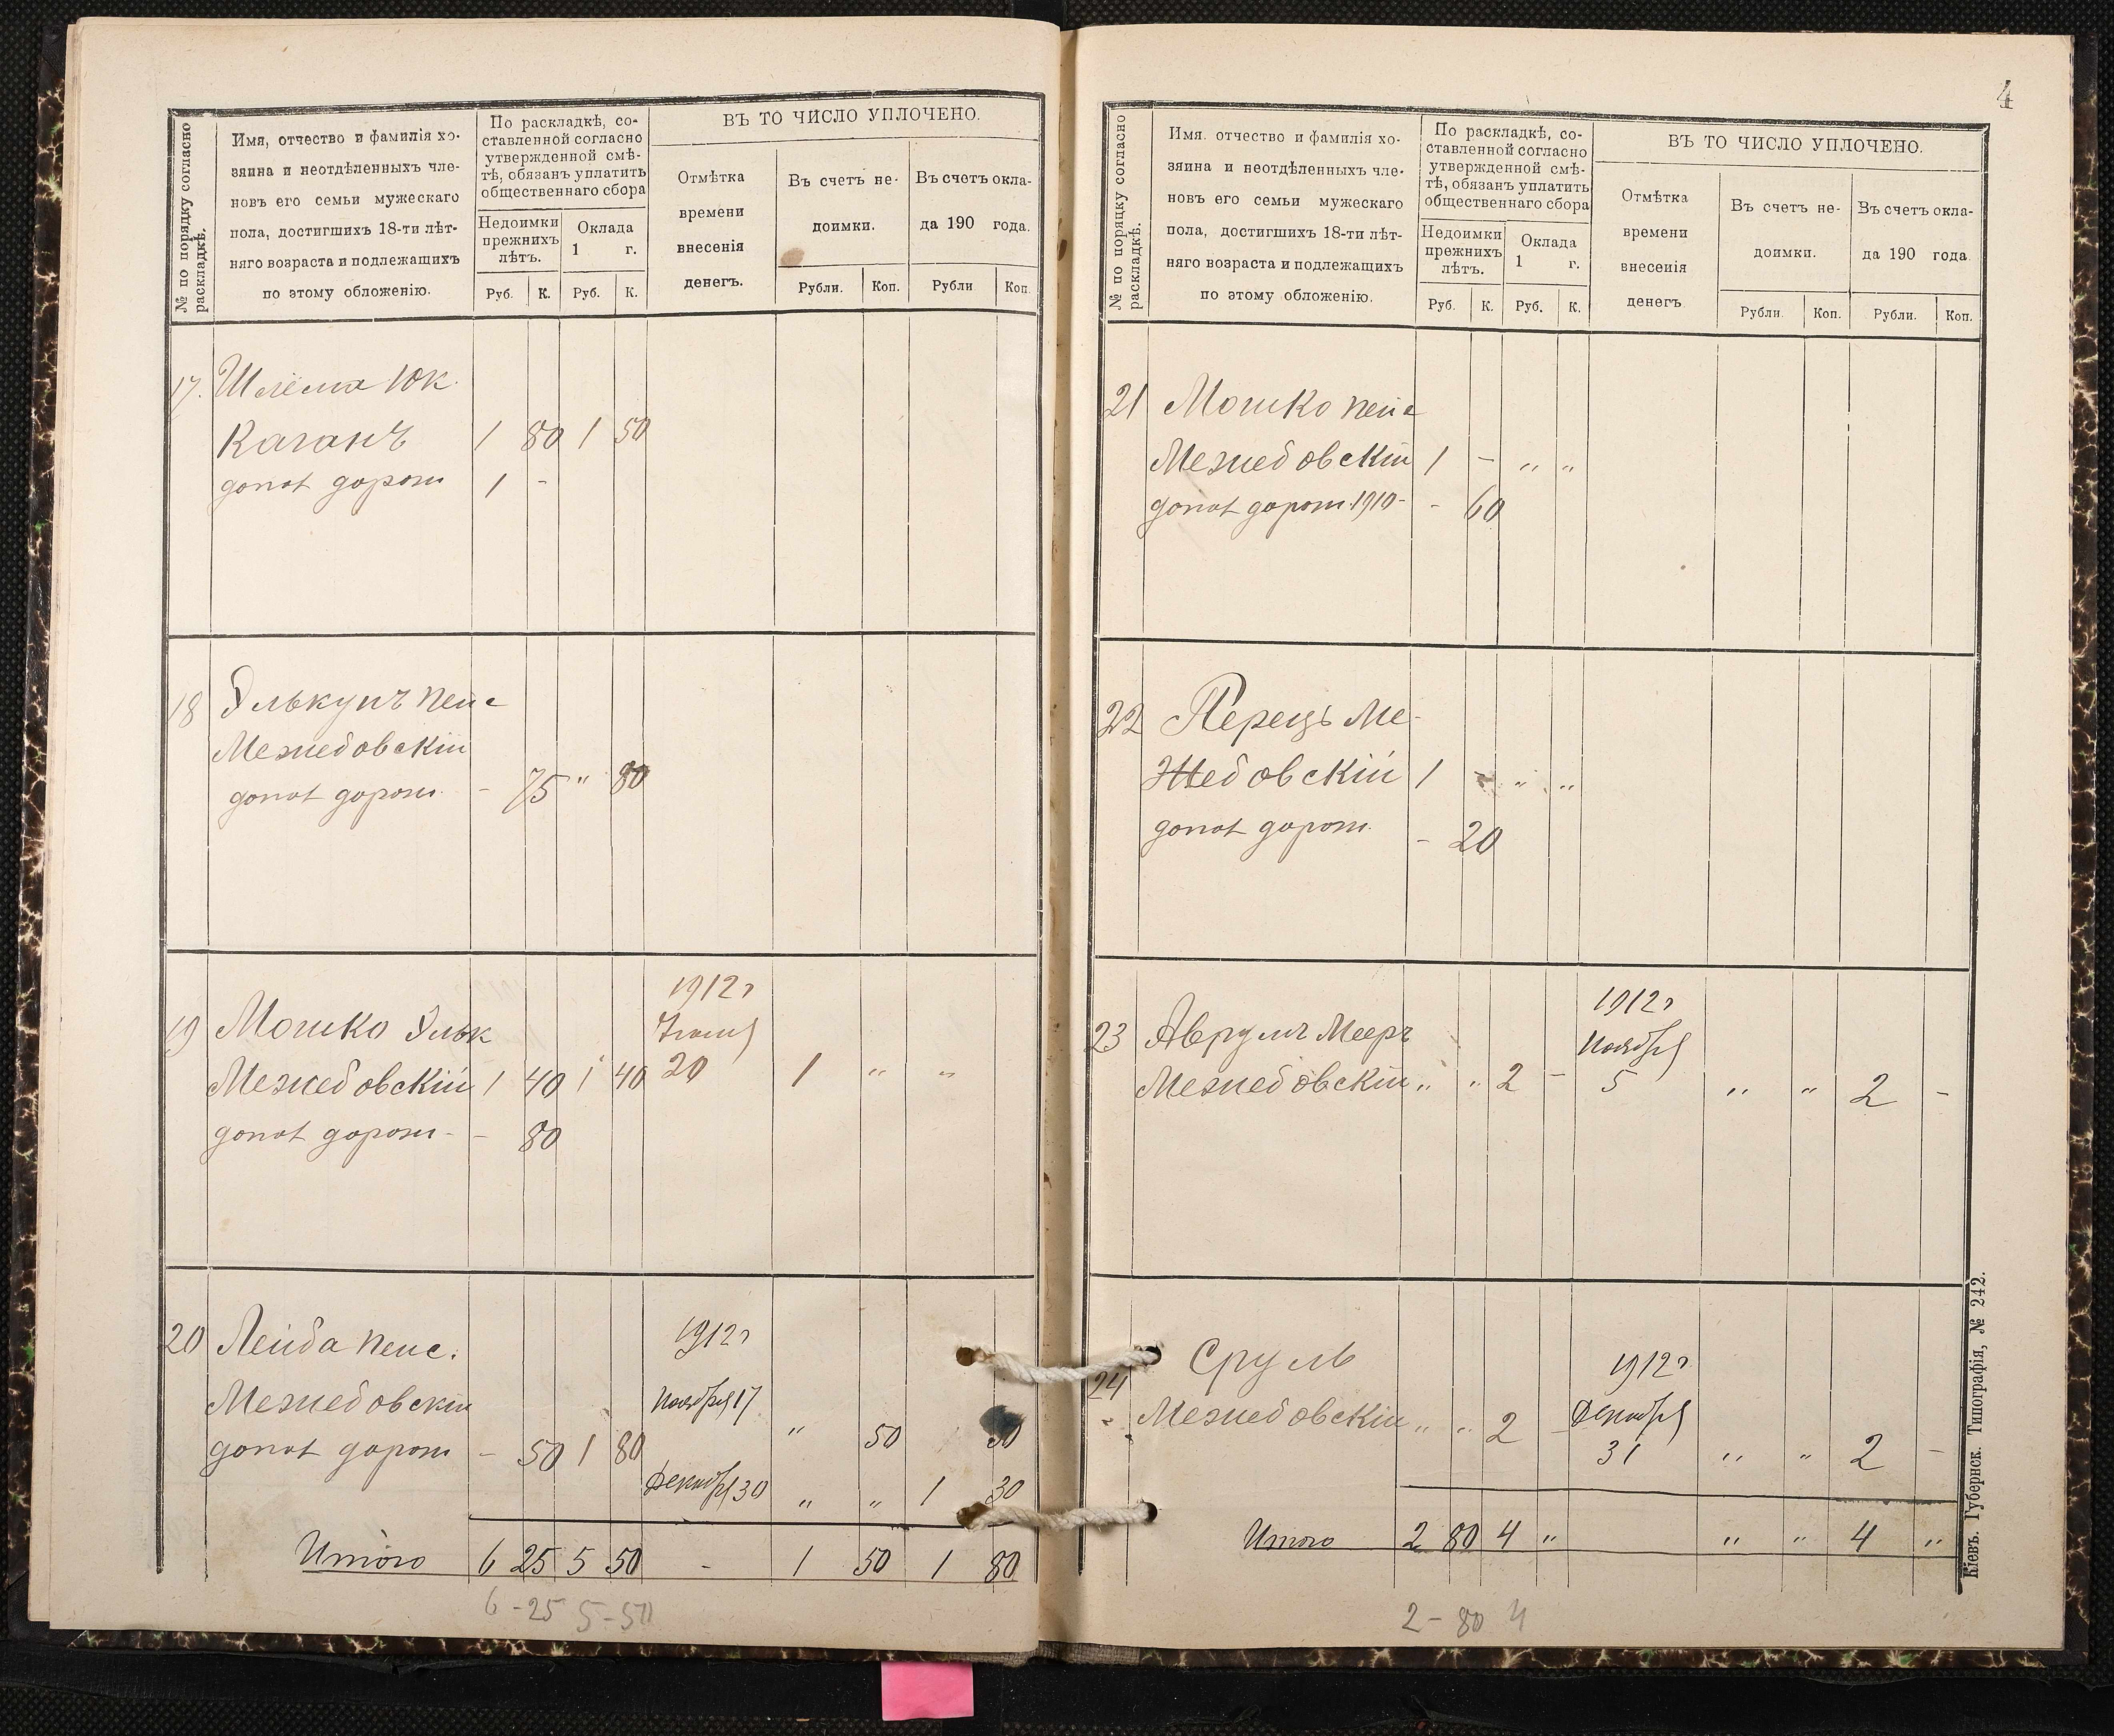 № по порядку согласно
раскладкѣ.
Имя, отчество и фамилія хо-
зяина и неотдѣленныхъ чле-
новъ его семьи мужескаго
пола, достигшихъ 18-ти лѣт-
няго возраста и подлежащихъ
по этому обложенію.
По раскладкѣ, со-
ставленной согласно
утвержденной смѣ-
тѣ, обязанъ уплатить
общественнаго сбора
Недоимки
прежнихъ
лѣтъ.
Оклада
1 г.
Руб. К. Руб. К.
ВЪ ТО ЧИСЛО УПЛОЧЕНО.
Отмѣтка
времени
внесенія
денегъ.
Въ счетъ не-
доимки.
Въ счетъ окла-
да 190 года.
Рубли. Коп. Рубли Коп.
17. Шлёма Юк.
Каганъ 1 80 1 50
дорож 1 -
18 Элькунъ Пейс
Межебовскій
дорож. - 75 " 80
1912 г
19 Мошко Эльк
20 1 " "
Межебовскій 1 40 1 40
дорож - - 80
20 Лейба Пейс. 1912 г
Межебовскій Ноября 17 " 50 50
дорож - 50 1 80
Декабря 30 " " 1 30
Итого 6 25 5 50 - 1 50 1 80
6 - 25 5 - 50
4
№ по порядку согласно
раскладкѣ.
Имя. отчество и фамилія хо-
зяина и неотдѣленныхъ чле-
новъ его семьи мужескаго
пола, достигшихъ 18-ти лѣт-
няго возраста и подлежащихъ
по этому обложенію.
По раскладкѣ, со-
ставленной согласно
утвержденной смѣ-
тѣ, обязанъ уплатить
общественнаго сбора
Недоимки
прежнихъ
лѣтъ.
Оклада
1 г.
Руб. К. Руб. К.
ВЪ ТО ЧИСЛО УПЛОЧЕНО.
Отмѣтка
времени
внесенія
денегъ
Въ счетъ не-
доимки.
Въ счетъ окла-
да 190 года
Рубли Коп. Рубли. Коп.
21 Мошко Пейс
Межебовскій 1 - " "
дорож. 1910 - - 60
22 Перецъ Ме-
жебовскій 1 - " "
дорож. - 20
1912 г
23 Аврумъ Мееръ Ноября
Межебовскій " " 2 - 5 " " 2 -
24 Сруль 1912 г.
Межебовскій " " 2 - Декабря
31 " " 2 -
Итого 2 80 4 " " " 4 "
2 - 80 4
Кіевъ. Губернск. Типографія, № 242.